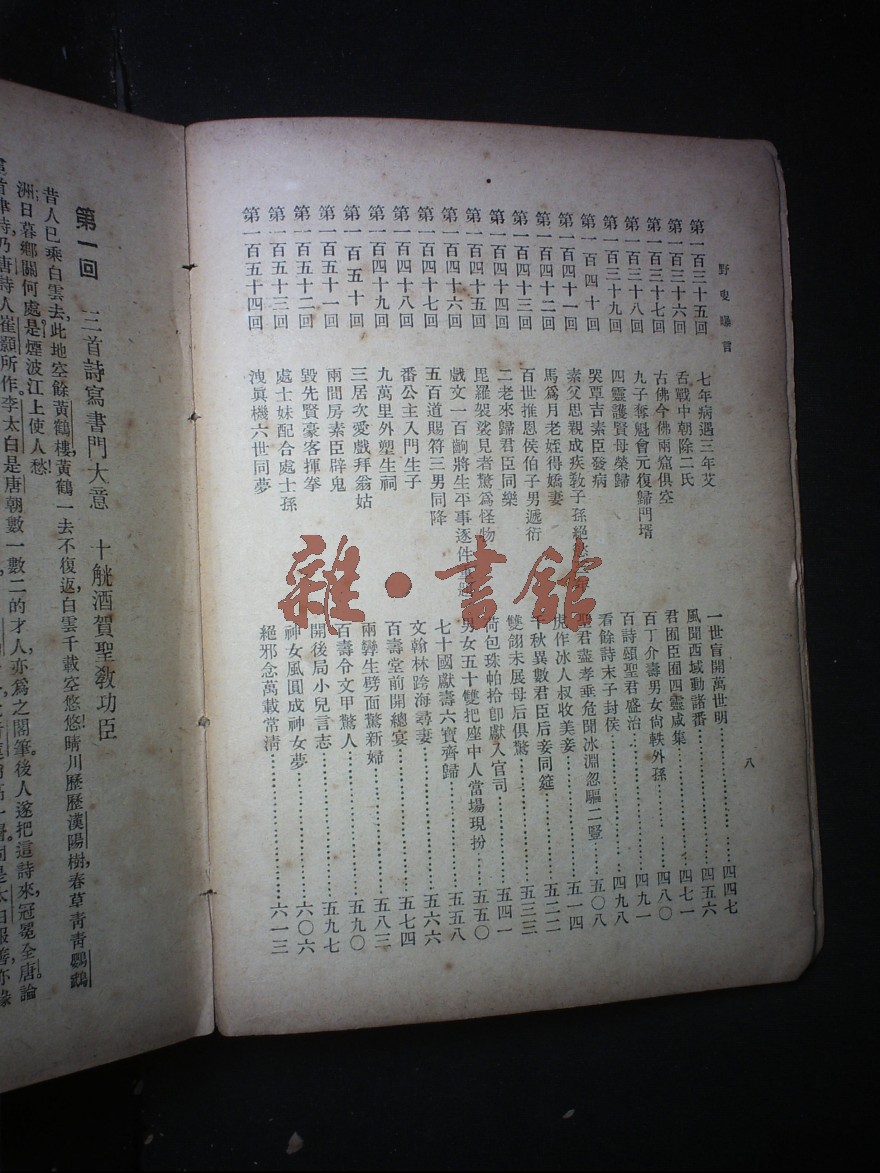 野叟曝言
八
第一百三十五回 七年病遇三年艾 一世盲開萬世明……四四七
第一百三十六回 舌戰中朝除二氏 風聞西域動諸番……四五六
第一百三十七回 古佛今佛兩窟俱空 君囿臣囿四靈咸集……四七一
第一百三十八回 九子奪魁會元復歸門壻 百丁介壽男女尙軼外孫……四八〇
第一百三十九回 四靈護賢母榮歸 百詩頌聖君盛治……四九一
第一百四十回 哭覃吉素臣發病 看餘詩末子封侯……四九八
第一百四十一回 素父思親成疾教子孫絕 聖君盡孝垂危聞冰淵忽驅二豎……五〇八
第一百四十二回 馬爲月老姪得嬌妻 虎作冰人叔收美妾……五一四
第一百四十三回 百世推恩侯伯子男遞衍 千秋異數君臣后妾同筵……五二二
第一百四十四回 二老來歸君臣同樂 雙翎未展母后俱驚……五三三
第一百四十五回 毘羅袈裟見者驚爲怪物 荷包珠帕拾卽獻入官司……五四一
第一百四十六回 戲文一百齣將生平事逐件 男女五十雙把座中人當場現扮……五五〇
第一百四十七回 五百道賜符三男同降 七十國獻壽六寶齊歸……五五八
第一百四十八回 番公主入門生子 文翰林跨海尋妻……五六六
第一百四十九回 九萬里外塑生祠 百壽堂前開總宴……五七四
第一百五十回 三居次愛戲拜翁姑 兩孿生劈面驚新婦……五八三
第一百五十一回 兩間房素臣辟鬼 百壽令文甲驚人……五九〇
第一百五十二回 毀先賢豪客揮拳 開後局小兒言志……五九七
第一百五十三回 處士妹配合處士孫 神女風圓成神女夢……六〇六
第一百五十四回 洩眞機六世同夢 絕邪念萬載常淸……六一三
雜·書館
第一回 三首詩寫書門大意 十觥酒賀聖教功臣
昔人已乘白雲去，此地空餘黃鶴樓，黃鶴一去不復返，白雲千載空悠悠！晴川歷歷漢陽樹，春草靑靑鸚鵡
洲，日暮鄉關何處是，煙波江上使人愁！
首律詩，乃唐詩人崔顥所作。李太白是唐朝數一數二的才人，亦爲之閣筆。後人遂把這詩來，冠冕全唐。論